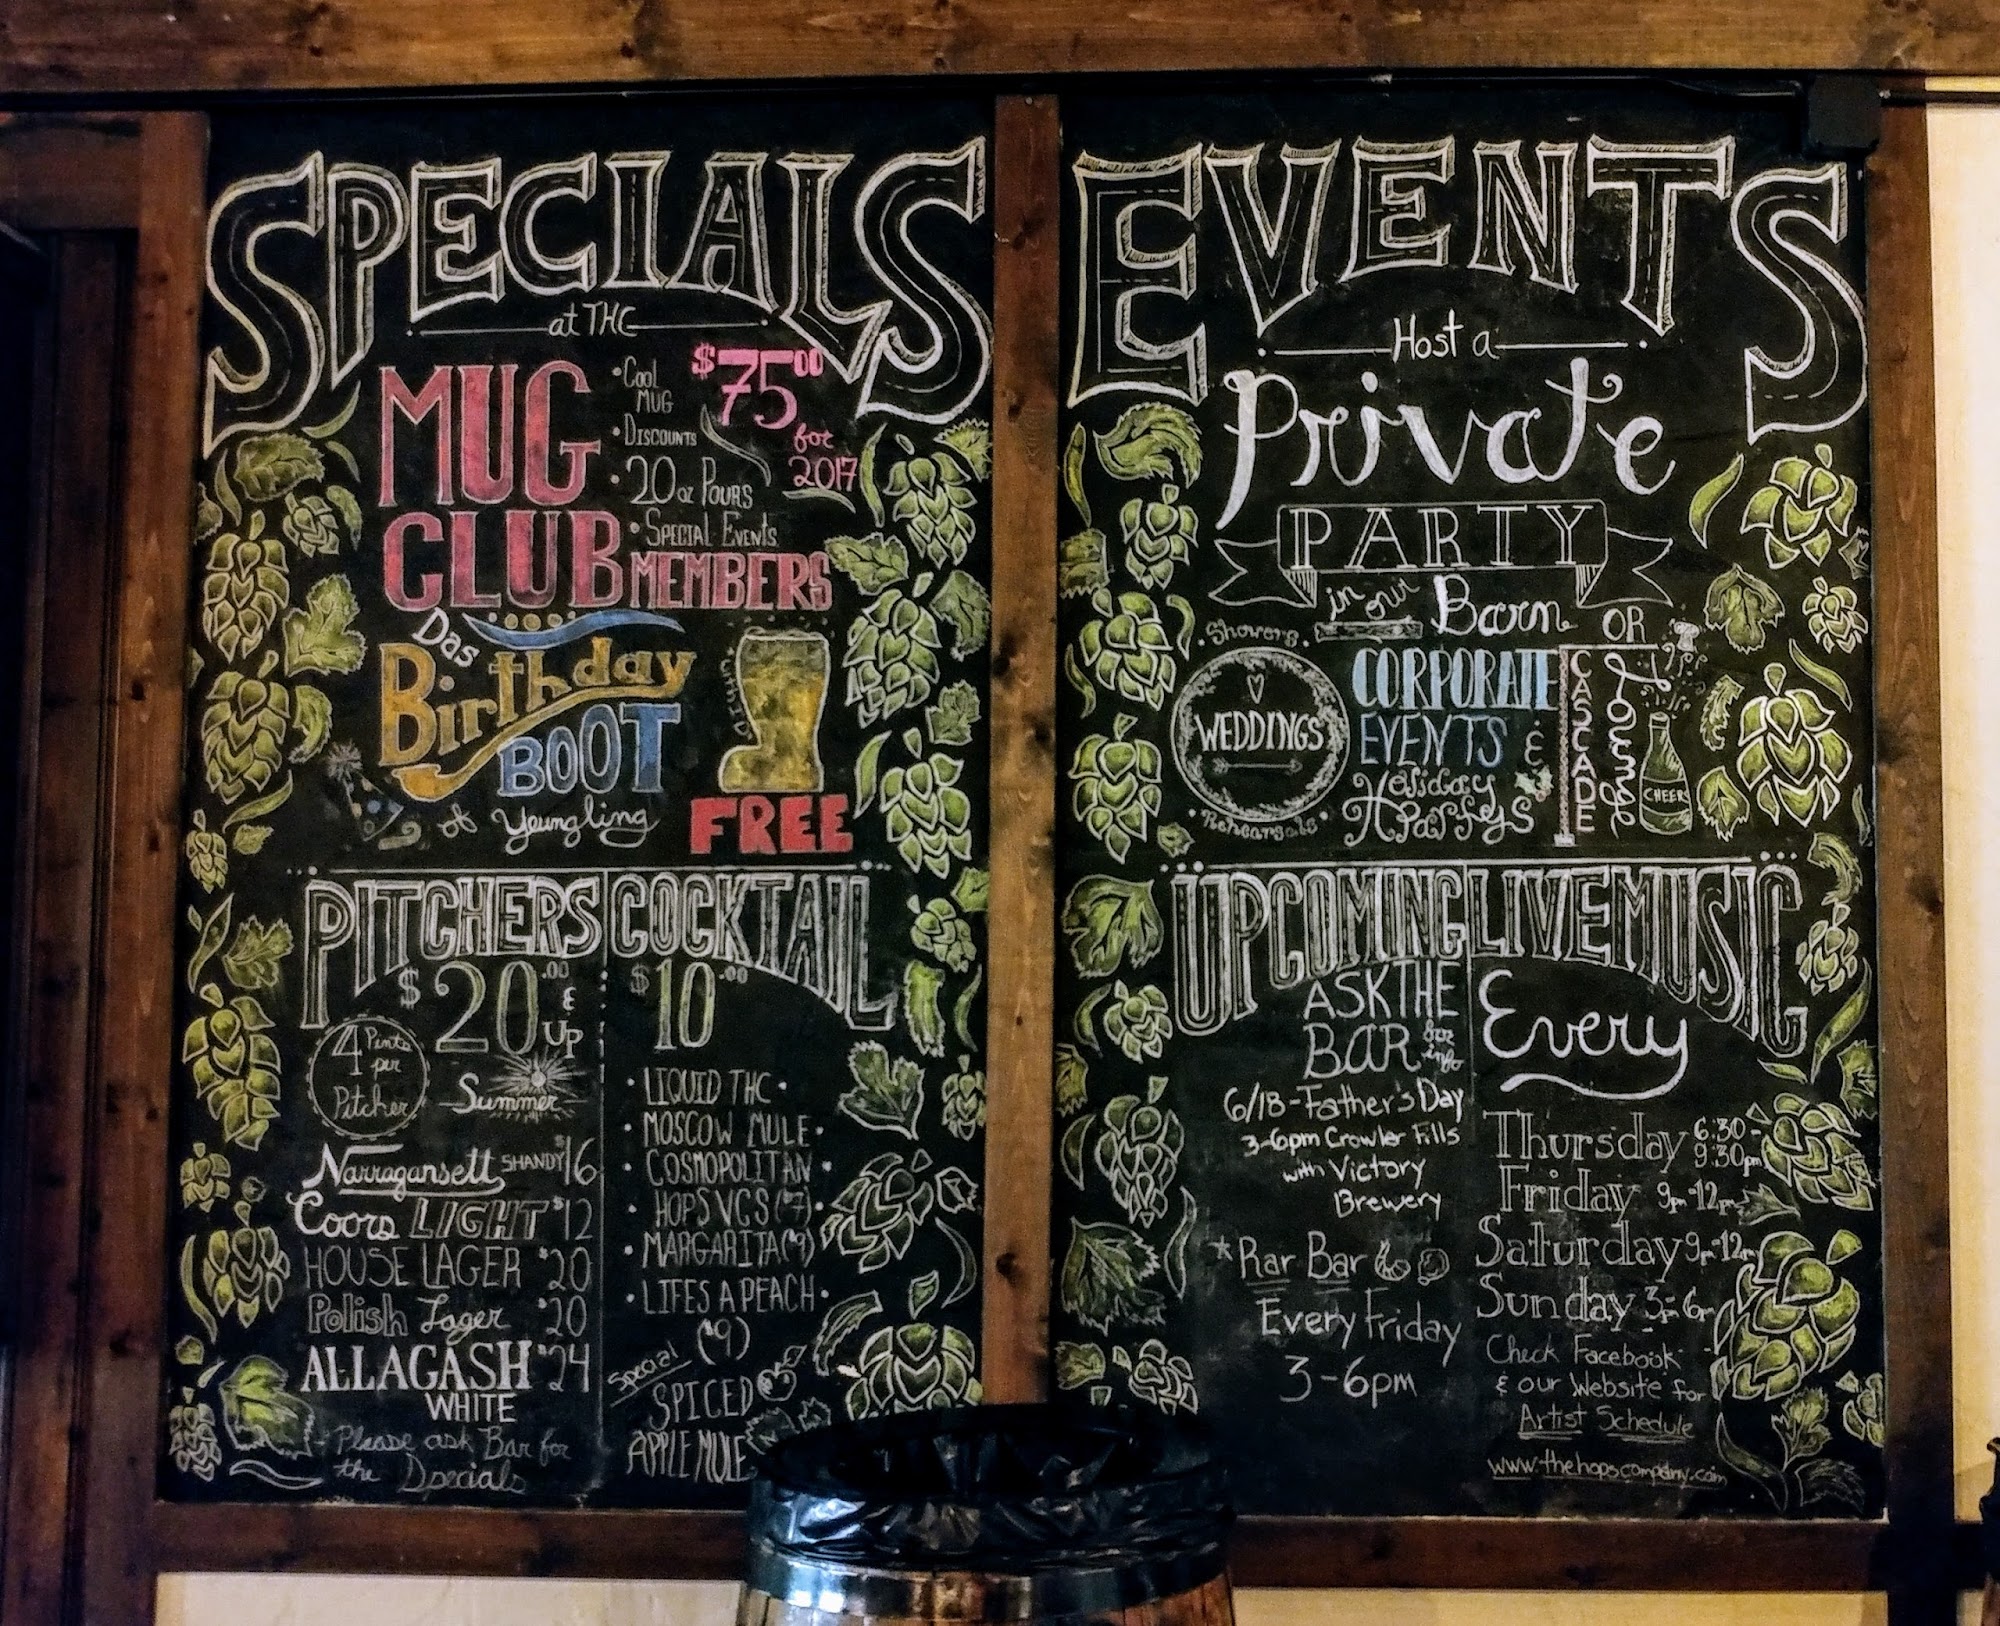 SPECIALS
at THC
MUG
CLUB
MEMBERS
• Cool
MUG
• DISCOUNTS
• 20 oz POURS
• SPECIAL EVENTS
$75.00
for
2017
Das
Birthday
BOOT
of Yeungling
FREE
PITCHERS
$20.00
& UP
4 Pints
per
Pitcher
Summer
Narragansett SHANDY $16
Coors LIGHT $12
HOUSE LAGER $20
Polish Lager $20
ALLAGASH $24
WHITE
Please ask Bar for
the Dpecials
COCKTAIL
$10.00
• LIQUID THC •
• MOSCOW MULE •
• COSMOPOLITAN •
• HOPS VCS ($7) •
• MARGARITA ($9) •
• LIFES A PEACH •
($9)
Special
SPICED
APPLE MULE
EVENTS
Host a
Private
PARTY
in our Barn OR
Showers
WEDDINGS
Rehearsals
CORPORATE
EVENTS &
Holiday
Partys
CASCADE
Lounge
CHEERS
UPCOMING
ASK THE
BAR for info
6/18 - Father's Day
3-6pm Crowler Fills
with Victory
Brewery
* Rar Bar
Every Friday
3-6pm
LIVE MUSIC
Every
Thursday 6:30-
9:30pm
Friday 9pm-12pm
Saturday 9pm-12pm
Sunday 3pm-6pm
Check Facebook
& our Website for
Artist Schedule
www.thehopscompany.com